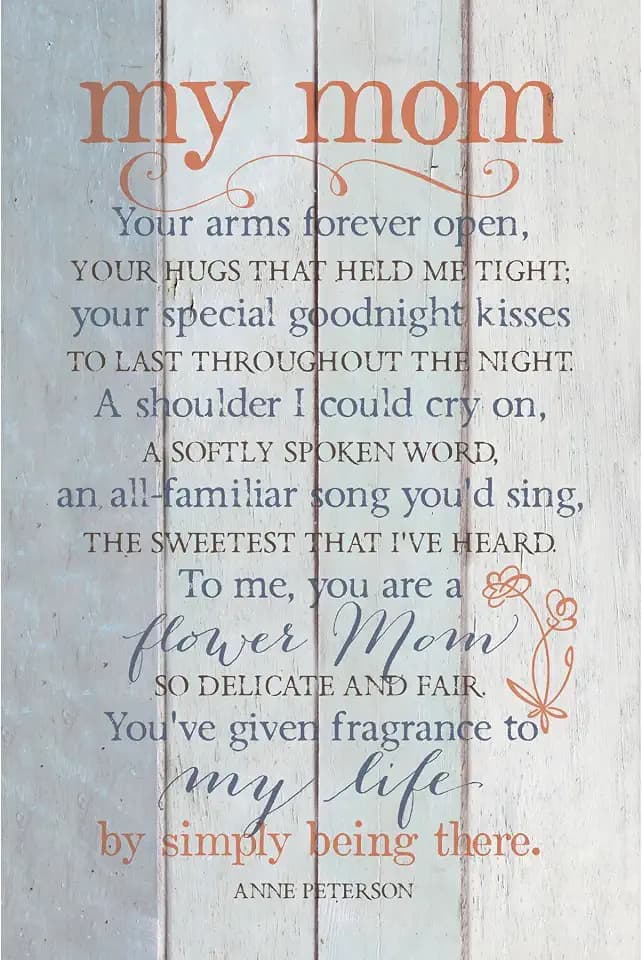 my mom
Your arms forever open,
YOUR HUGS THAT HELD ME TIGHT;
your special goodnight kisses
TO LAST THROUGHOUT THE NIGHT.
A shoulder I could cry on,
A SOFTLY SPOKEN WORD,
an all-familiar song you'd sing,
THE SWEETEST THAT I'VE HEARD.
To me, you are a
flower Mom
SO DELICATE AND FAIR.
You've given fragrance to
my life
by simply being there.
ANNE PETERSON